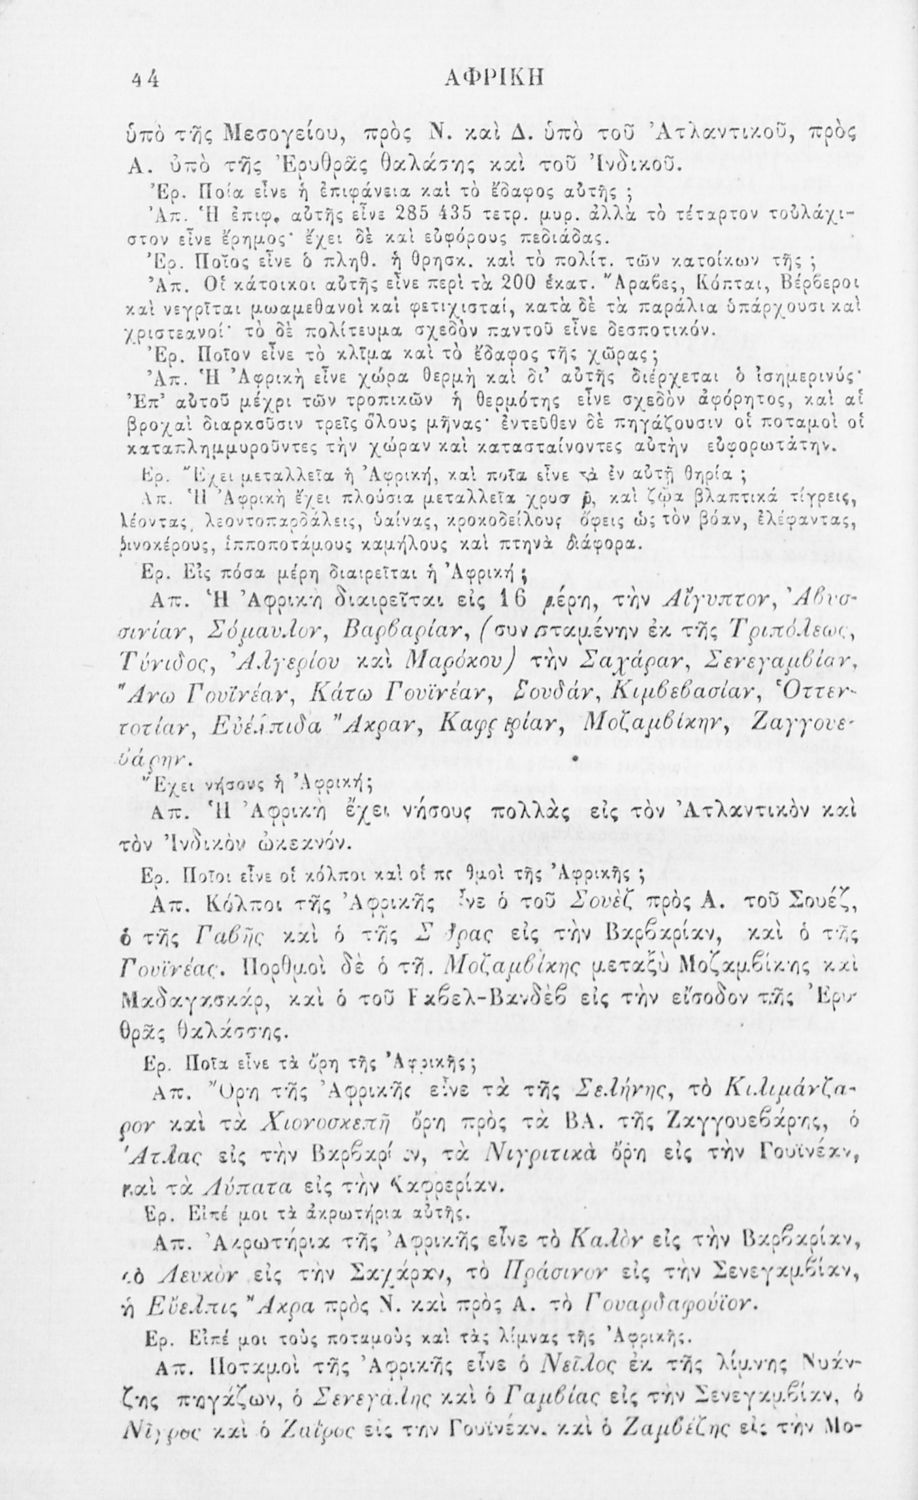 44 ΑΦΡΙΚΗ
ὑπὸ τῆς Μεσογείου, πρὸς Ν. καὶ Δ. ὑπὸ τοῦ Ἀτλαντικοῦ, πρὸς
Α. ὑπὸ τῆς Ἐρυθρᾶς θαλάσσης καὶ τοῦ Ἰνδικοῦ.
Ἐρ. Ποία εἶνε ἡ ἐπιφάνεια καὶ τὸ ἔδαφος αὐτῆς ;
Ἀπ. Ἡ ἐπιφ. αὐτῆς εἶνε 285 435 τετρ. μυρ. ἀλλὰ τὸ τέταρτον τοὐλάχι-
στον εἶνε ἔρημος· ἔχει δὲ καὶ εὐφόρους πεδιάδας.
Ἐρ. Ποῖος εἶνε ὁ πληθ. ἡ θρησκ. καὶ τὸ πολίτ. τῶν κατοίκων τῆς ;
Ἀπ. Οἱ κάτοικοι αὐτῆς εἶνε περὶ τὰ 200 ἑκατ. Ἄραβες, Κόπται, Βέρβεροι
καὶ νεγρῖται μωαμεθανοὶ καὶ φετιχισταί, κατὰ δὲ τὰ παράλια ὑπάρχουσι καὶ
χριστεανοί· τὸ δὲ πολίτευμα σχεδὸν παντοῦ εἶνε δεσποτικόν.
Ἐρ. Ποῖον εἶνε τὸ κλῖμα καὶ τὸ ἔδαφος τῆς χῶρας ;
Ἀπ. Ἡ Ἀφρικὴ εἶνε χώρα θερμὴ καὶ δι' αὐτῆς διέρχεται ὁ ἰσημερινός·
Ἐπ' αὐτοῦ μέχρι τῶν τροπικῶν ἡ θερμότης εἶνε σχεδὸν ἀφόρητος, καὶ αἱ
βροχαὶ διαρκοῦσιν τρεῖς ὅλους μῆνας· ἐντεῦθεν δὲ πηγάζουσιν οἱ ποταμοὶ οἱ
καταπλημμυροῦντες τὴν χώραν καὶ κατασταίνοντες αὐτὴν εὐφορωτάτην.
Ἐρ. Ἔχει μεταλλεῖα ἡ Ἀφρική, καὶ ποῖα εἶνε τὰ ἐν αὐτῇ θηρία ;
Ἀπ. Ἡ Ἀφρικὴ ἔχει πλούσια μεταλλεῖα καὶ ζῶα βλαπτικά τίγρεις,
λέοντας, λεοντοπαρδάλεις, ὑαίνας, κροκοδείλους ὄφεις ὡς τὸν βόαν, ἐλέφαντας,
ῥινοκέρους, ἱπποποτάμους καμήλους καὶ πτηνὰ διάφορα.
Ἐρ. Εἰς πόσα μέρη διαιρεῖται ἡ Ἀφρική ;
Ἀπ. Ἡ Ἀφρικὴ διαιρεῖται εἰς 16 μέρη, τὴν Αἴγυπτον, Ἀβυσ-
σινίαν, Σόμαυλον, Βαρβαρίαν, (συνισταμένην ἐκ τῆς Τριπόλεως,
Τύνιδος, Ἀλγερίου καὶ Μαρόκου) τὴν Σαχάραν, Σενεγαμβίαν,
Ἄνω Γουϊνέαν, Κάτω Γουϊνέαν, Σουδάν, Κιμβεβασίαν, Ὀττεν-
τοτίαν, Εὐέλπιδα Ἄκραν, Καφρερίαν, Μοζαμβίκην, Ζαγγουε-
βάρην.
Ἔχει νήσους ἡ Ἀφρική ;
Απ. Ἡ Ἀφρικὴ ἔχει νήσους πολλὰς εἰς τὸν Ἀτλαντικὸν καὶ
τὸν Ἰνδικὸν ὠκεανόν.
Ἐρ. Ποῖοι εἶνε οἱ κόλποι καὶ οἱ πορθμοὶ τῆς Ἀφρικῆς ;
Ἀπ. Κόλποι τῆς Ἀφρικῆς εἶνε ὁ τοῦ Σουὲζ πρὸς Α. τοῦ Σουέζ,
ὁ τῆς Γαβῆς καὶ ὁ τῆς Σύδρας εἰς τὴν Βαρβαρίαν, καὶ ὁ τῆς
Γουϊνέας. Πορθμοὶ δὲ ὁ τῆς Μοζαμβίκης μεταξὺ Μοζαμβίκης καὶ
Μαδαγασκάρ, καὶ ὁ τοῦ Βαβελ-Βανδὲβ εἰς τὴν εἴσοδον τῆς Ἐρυ-
θρᾶς θαλάσσης.
Ἐρ. Ποῖα εἶνε τὰ ὄρη τῆς Ἀφρικῆς ;
Απ. Ὄρη τῆς Ἀφρικῆς εἶνε τὰ τῆς Σελήνης, τὸ Κιλιμάνζα-
ρον καὶ τὰ Χιονοσκεπῆ ὄρη πρὸς τὰ ΒΑ. τῆς Ζαγγουεβάρης, ὁ
Ἄτλας εἰς τὴν Βαρβαρίαν, τὰ Νιγριτικὰ ὄρη εἰς τὴν Γουϊνέαν,
καὶ τὰ Λύπατα εἰς τὴν Καφρερίαν.
Ἐρ. Εἰπέ μοι τὰ ἀκρωτήρια αὐτῆς.
Απ. Ἀκρωτήρια τῆς Ἀφρικῆς εἶνε τὸ Καλὸν εἰς τὴν Βαρβαρίαν,
τὸ Λευκὸν εἰς τὴν Σαχάραν, τὸ Πράσινον εἰς τὴν Σενεγαμβίαν,
ἡ Εὔελπις Ἄκρα πρὸς Ν. καὶ πρὸς Α. τὸ Γουαρδαφούϊον.
Ἐρ. Εἰπέ μοι τοὺς ποταμοὺς καὶ τὰς λίμνας τῆς Ἀφρικῆς.
Ἀπ. Ποταμοὶ τῆς Ἀφρικῆς εἶνε ὁ Νεῖλος ἐκ τῆς λίμνης Νυάν-
ζης πηγάζων, ὁ Σενεγάλης καὶ ὁ Γαμβίας εἰς τὴν Σενεγαμβίαν, ὁ
Νίγρος καὶ ὁ Ζαΐρος εἰς τὴν Γουϊνέαν. καὶ ὁ Ζαμβέζης εἰς τὴν Μο-